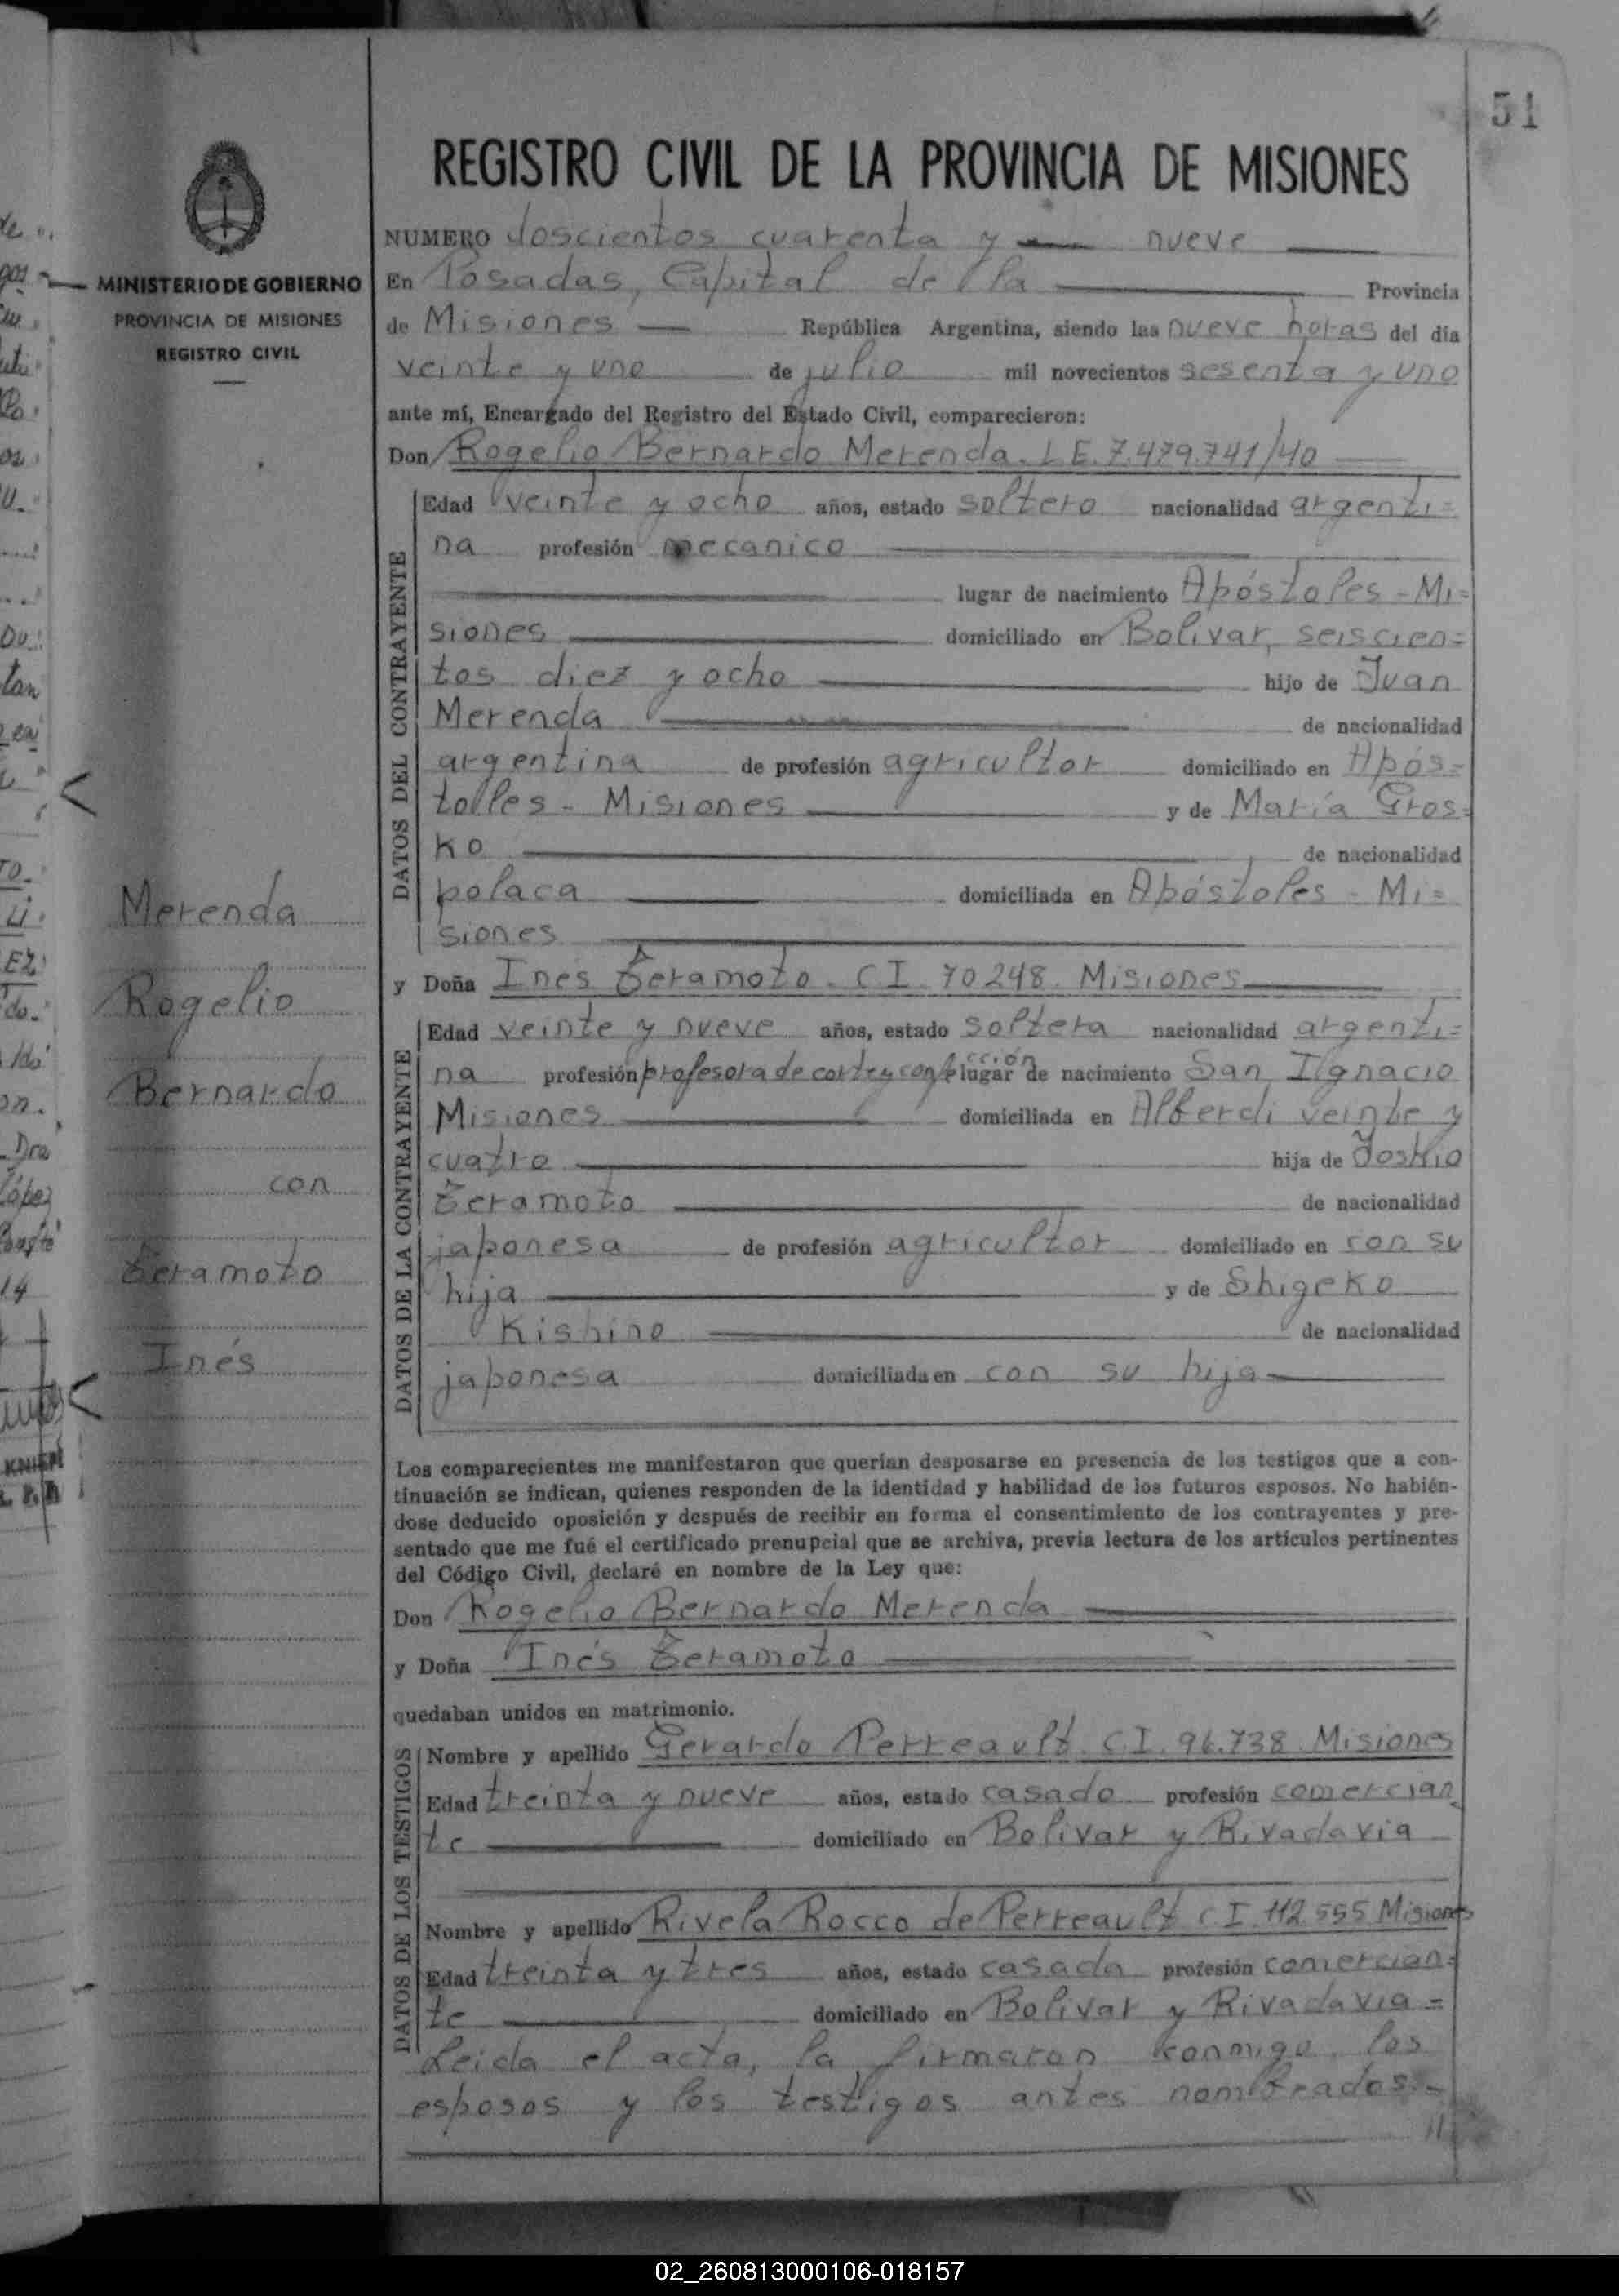 51
REGISTRO CIVIL DE LA PROVINCIA DE MISIONES
MINISTERIO DE GOBIERNO
PROVINCIA DE MISIONES
REGISTRO CIVIL
NUMERO doscientos cuarenta y nueve
En Posadas, Capital de la Provincia
de Misiones República Argentina, siendo las nueve horas del día
veinte y uno de julio mil novecientos sesenta y uno
ante mí, Encargado del Registro del Estado Civil, comparecieron:
Don Rogelio Bernardo Merenda. L E. 7.479.741/40
DATOS DEL CONTRAYENTE
Edad veinte y ocho años, estado soltero nacionalidad argenti=
na profesión mecanico
lugar de nacimiento Apóstoles - Mi=
siones domiciliado en Bolivar, seiscien=
tos diez y ocho hijo de Juan
Merenda de nacionalidad
argentina de profesión agricultor domiciliado en Após=
tolles - Misiones y de María Gros=
ko de nacionalidad
polaca domiciliada en Apóstoles - Mi=
siones
y Doña Inés Teramoto. C I. 70248. Misiones
DATOS DE LA CONTRAYENTE
Edad veinte y nueve años, estado soltera nacionalidad argenti=
na profesión profesora de corte y confección lugar de nacimiento San Ignacio
Misiones domiciliada en Alberdi veinte y
cuatro hija de Joshio
Teramoto de nacionalidad
japonesa de profesión agricultor domiciliado en con su
hija y de Shigeko
Kishino de nacionalidad
japonesa domiciliada en con su hija
Merenda
Rogelio
Bernardo
con
Teramoto
Inés
Los comparecientes me manifestaron que querían desposarse en presencia de los testigos que a con-
tinuación se indican, quienes responden de la identidad y habilidad de los futuros esposos. No habién-
dose deducido oposición y después de recibir en forma el consentimiento de los contrayentes y pre-
sentado que me fué el certificado prenupcial que se archiva, previa lectura de los artículos pertinentes
del Código Civil, declaré en nombre de la Ley que:
Don Rogelio Bernardo Merenda
y Doña Inés Teramoto
quedaban unidos en matrimonio.
DATOS DE LOS TESTIGOS
Nombre y apellido Gerardo Perreault C.I. 96.738. Misiones
Edad treinta y nueve años, estado casado profesión comercian
te domiciliado en Bolivar y Rivadavia
Nombre y apellido Rivela Rocco de Perreault C.I 112 555 Misiones
Edad treinta y tres años, estado casada profesión comercian=
te domiciliado en Bolivar y Rivadavia =
Leida el acta, la firmaron conmigo los
esposos y los testigos antes nombrados.-
02_260813000106-018157